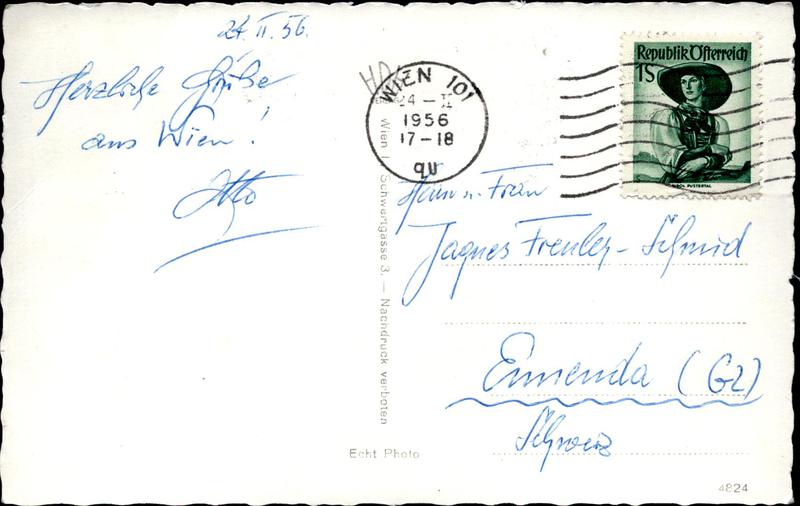 24. II. 56.
Herzliche Grüße
aus Wien!
Otto
WIEN 101
24 – II
1956
17–18
qu
Republik Österreich
1S
TIROL PUSTERTAL
Wien I, Schwertgasse 3. — Nachdruck verboten
Herrn u. Frau
Jaques Freuler-Schmid
Ennenda (Gl)
Schweiz
Echt Photo
4824